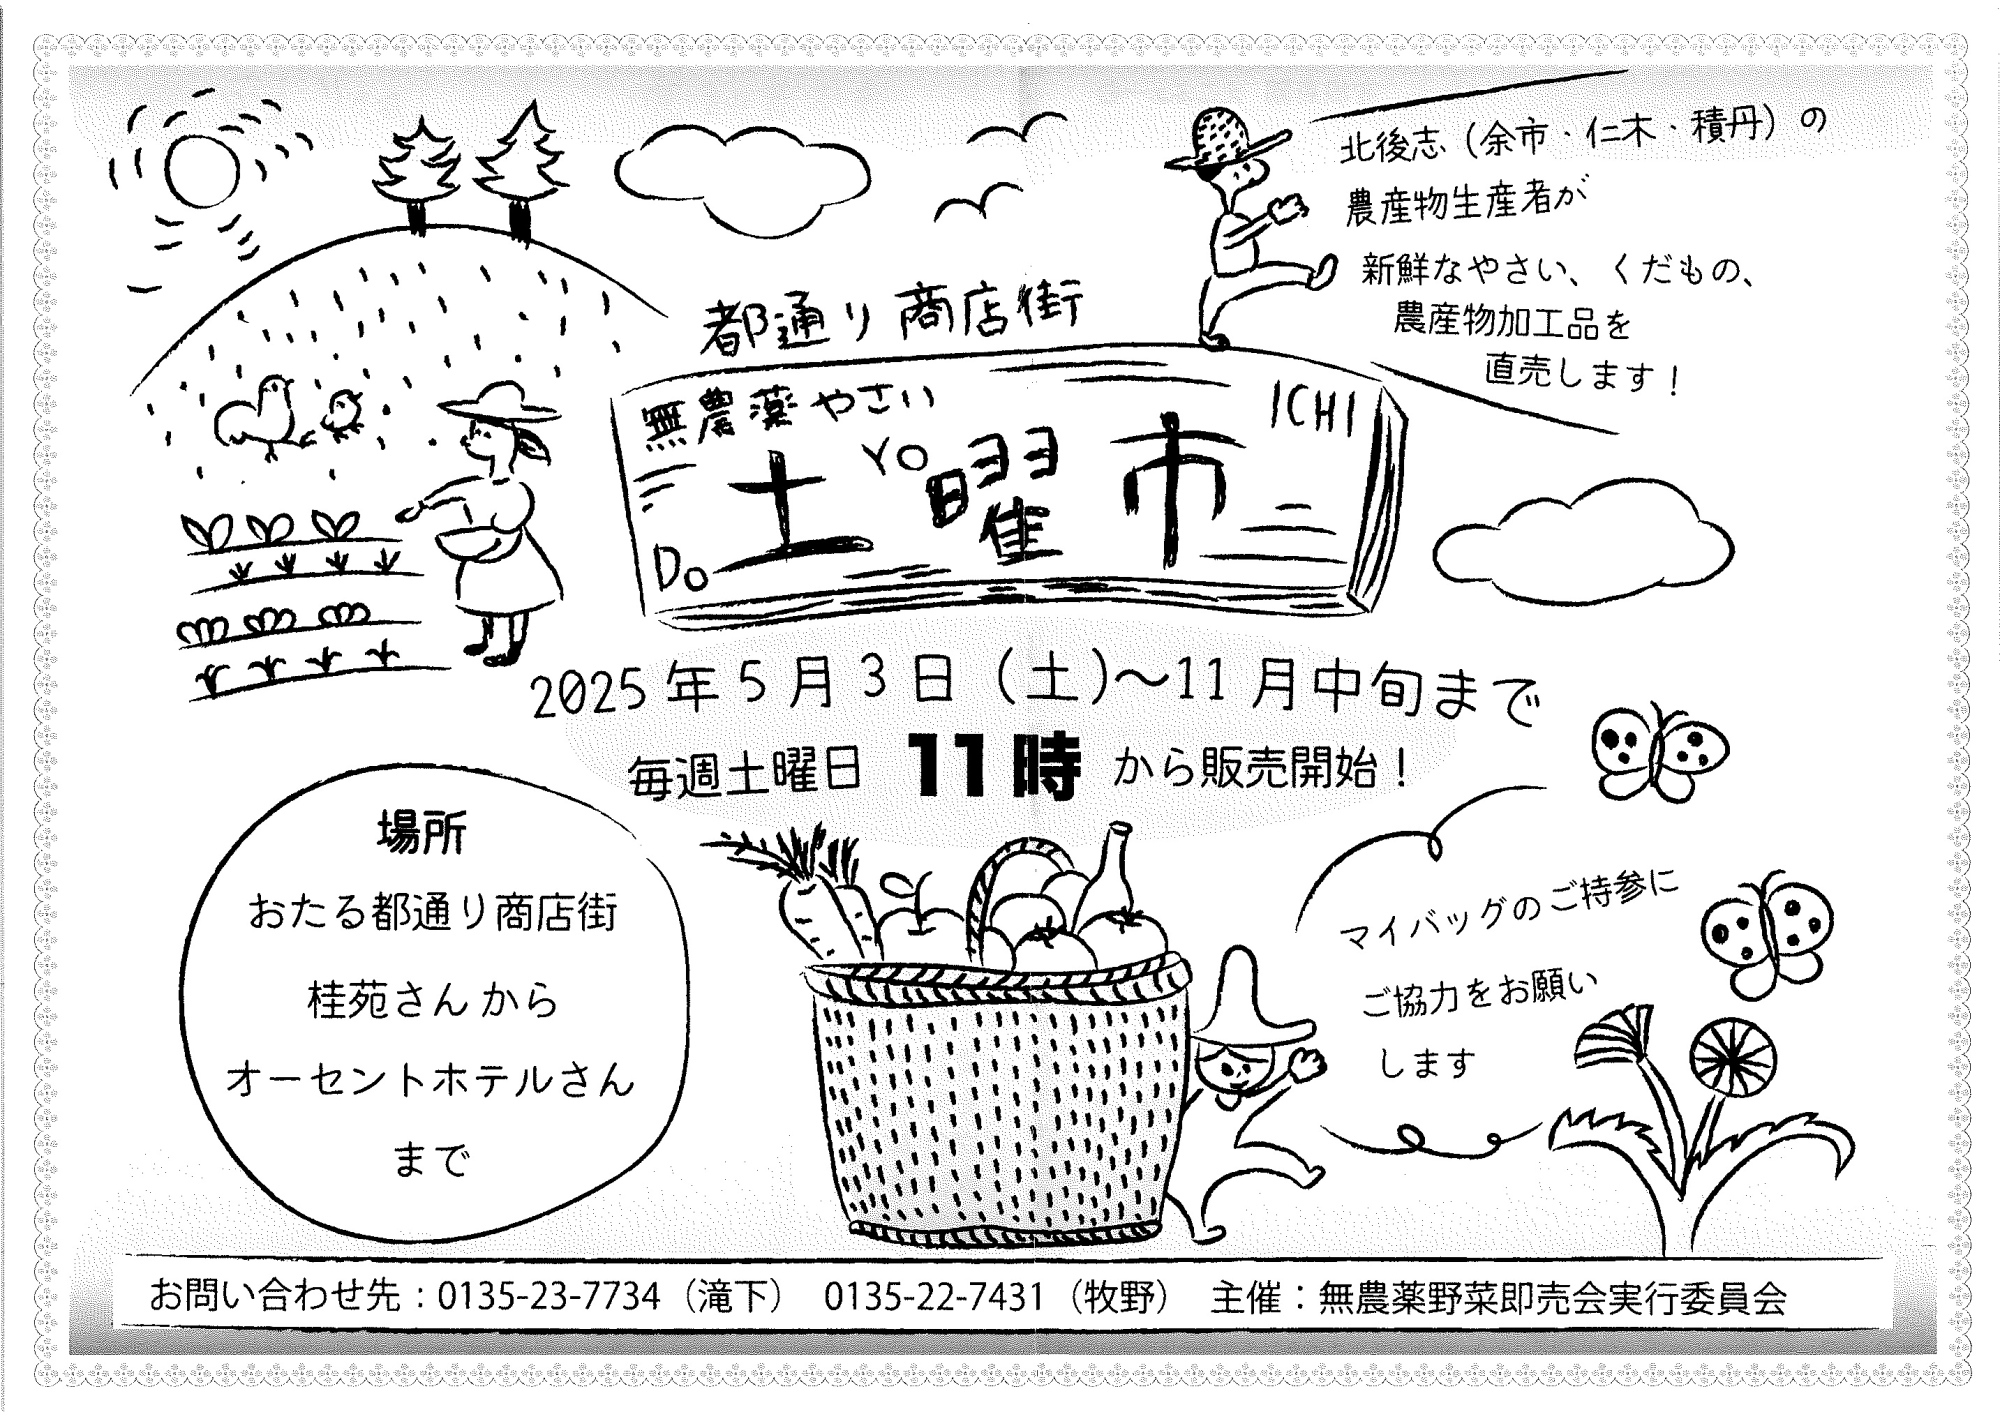 北後志（余市・仁木・積丹）の
農産物生産者が
新鮮なやさい、くだもの、
農産物加工品を
直売します！
都通り商店街
無農薬やさい
ICHI
YO
土曜市
Do
2025年5月3日（土）～11月中旬まで
毎週土曜日 11時 から販売開始！
場所
おたる都通り商店街
桂苑さんから
オーセントホテルさん
まで
マイバッグのご持参に
ご協力をお願い
します
お問い合わせ先：0135-23-7734（滝下） 0135-22-7431（牧野） 主催：無農薬野菜即売会実行委員会